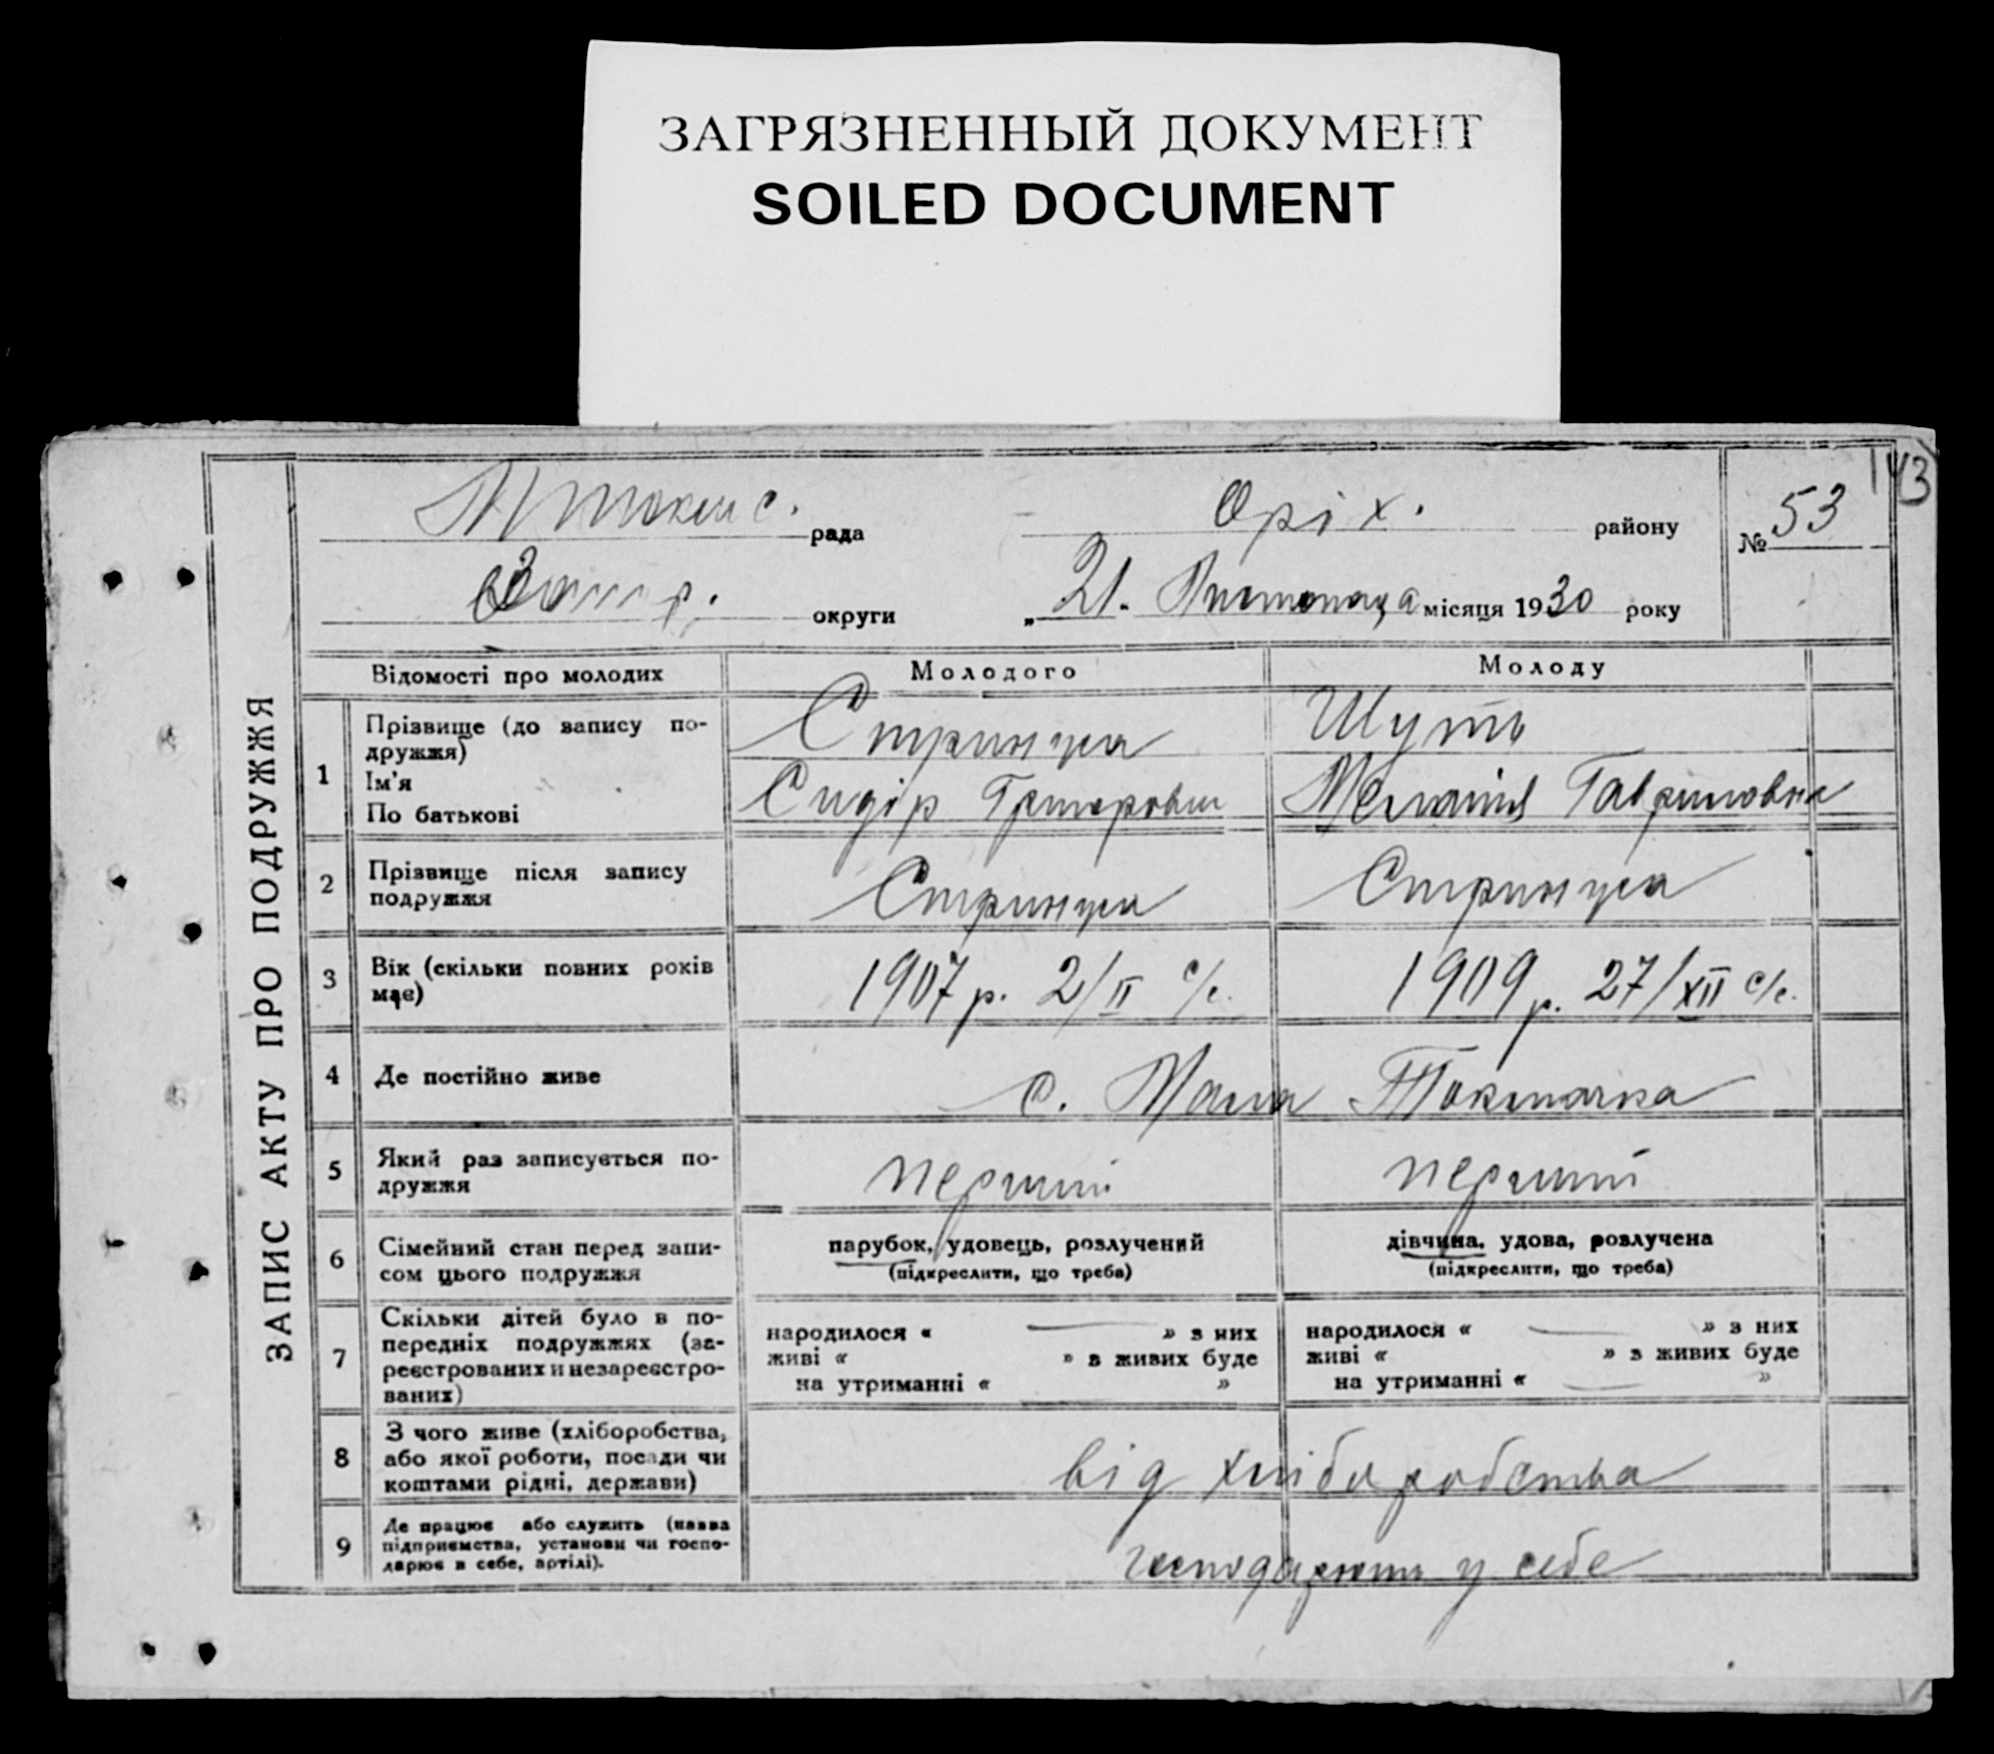 ЗАГРЯЗНЕННЫЙ ДОКУМЕНТ
SOILED DOCUMENT
143
рада Оріх. району № 53
округи „ 21. Листопада місяця 1930 року
ЗАПИС АКТУ ПРО ПОДРУЖЖЯ
Відомості про молодих Молодого Молоду
1 Прізвище (до запису по-
дружжя)
Ім'я
По батькові
Шуть
Сидір Григорович Меланія Гавриловна
2 Прізвище після запису
подружжя
3 Вік (скільки повних років
має)
1907 р. 2/II с/с. 1909 р. 27/XII с/с.
4 Де постійно живе с. Мала Токмачка
5 Який раз записується по-
дружжя
перший перший
6 Сімейний стан перед запи-
сом цього подружжя
парубок, удовець, розлучений дівчина, удова, розлучена
(підкреслити, що треба) (підкреслити, що треба)
7 Скільки дітей було в по-
передніх подружжях (за-
реєстрованих и незареєстро-
ваних)
народилося « — » з них народилося « — » з них
живі « » з живих буде живі « » з живих буде
на утриманні « » на утриманні « — »
8 З чого живе (хліборобства,
або якої роботи, посади чи
коштами рідні, держави)
від хліборобства
9 Де працює або служить (назва
підприємства, установи чи госпо-
дарює в себе, артілі).
господарюють у себе